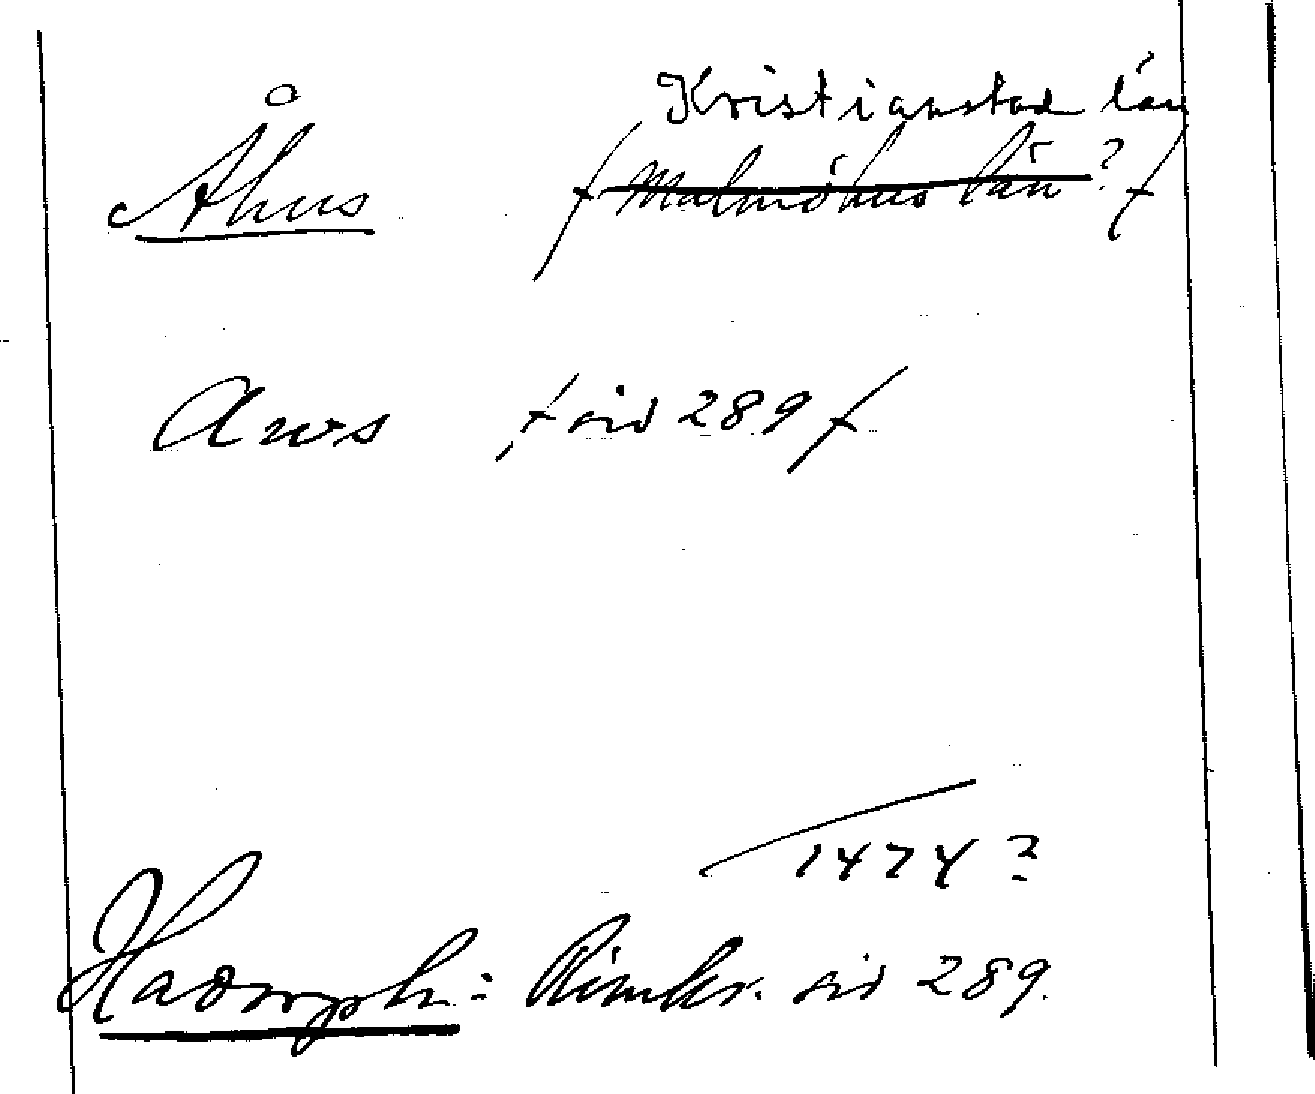 Kristianstad län
Åhus / Malmöhus län? /
Aws / sid 289 /
1474?
Hadorph: Rimkr. sid 289.